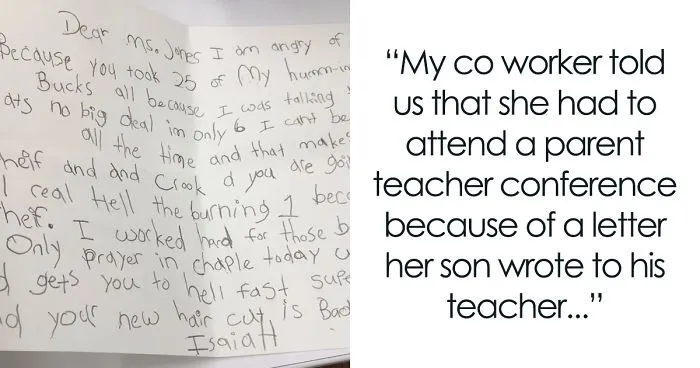 Dear Ms. Jones I am angry of
Because you took 25 of My humm-in
Bucks all because I was talking
ats no big deal im only 6 I cant be
all the time and that makes
heif and and Crook d you are goi
real Hell the burning 1 beca
hef. I worked hard for those b
Only prayer in chaple today
gets you to hell fast supe
d your new hair cut is Bad
Isaiah
“My co worker told
us that she had to
attend a parent
teacher conference
because of a letter
her son wrote to his
teacher...”